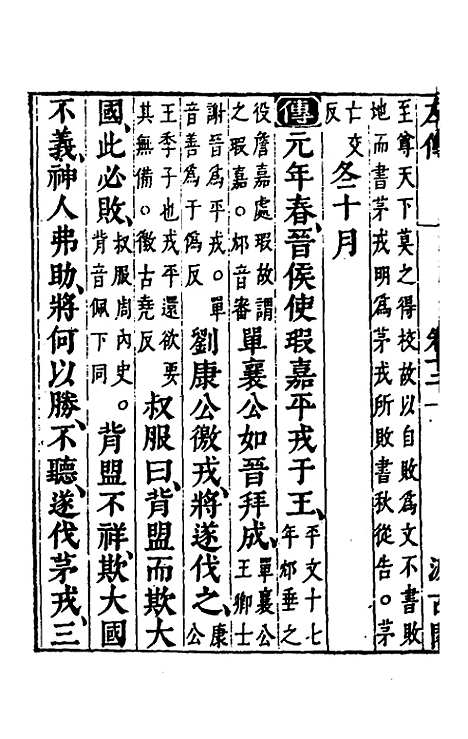 至尊天下莫之得校故以自敗為文不書敗
地而書茅戎明為茅戎所敗書秋從告。茅
亡交
反
冬十月
傳元年春、晉侯使瑕嘉平戎于王、
平文十七
年邥垂之
役詹嘉處瑕故謂
之瑕嘉。邥音審
單襄公如晉拜成、
單襄公
王卿士
謝晉為平戎。單
音善為于偽反
劉康公徼戎、將遂伐之、
康
公
王季子也戎平還欲要
其無備。徼古堯反
叔服曰、背盟而欺大
國、此必敗、
叔服周內史。
背音佩下同
背盟不祥、欺大國
不義、神人弗助、將何以勝、不聽、遂伐茅戎、三